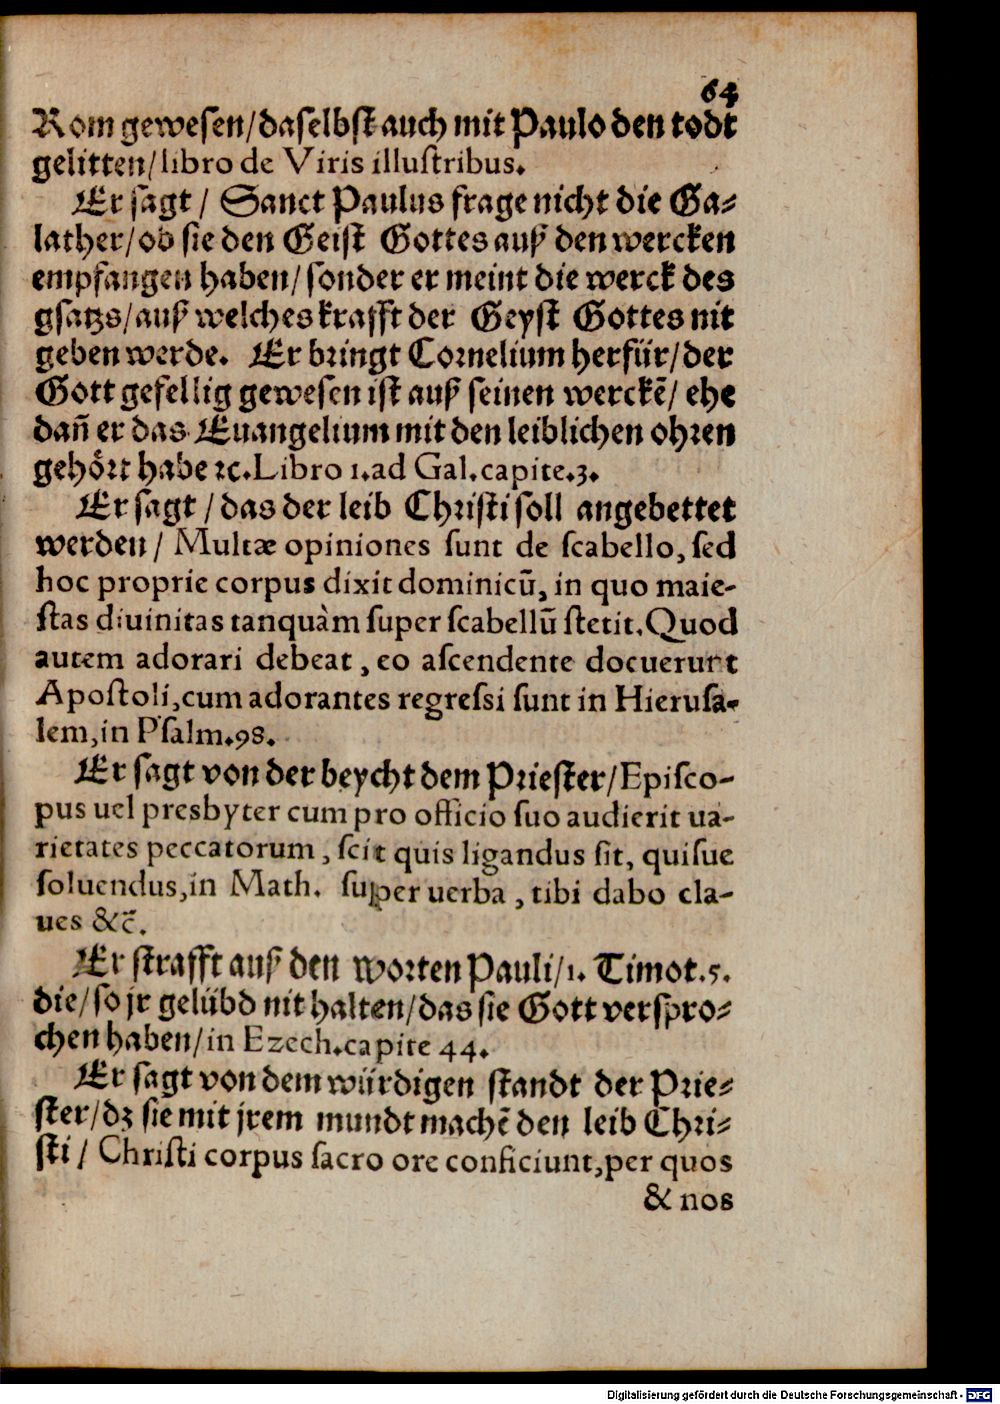 64
Rom gewesen/daselbst auch mit Paulo den todt
gelitten/libro de Viris illustribus.
Er sagt / Sanct Paulus frage nicht die Ga⸗
lather/ob sie den Geist Gottes auß den wercken
empfangen haben/sonder er meint die werck des
gsatzs/auß welches krafft der Geyst Gottes nit
geben werde. Er bringt Cornelium herfür/der
Gott gefellig gewesen ist auß seinen werckẽ/ ehe
dañ er das Euangelium mit den leiblichen ohren
gehört habe ꝛc.Libro 1.ad Gal.capite.3.
Er sagt / das der leib Christi soll angebettet
werden/ Multæ opiniones ſunt de ſcabello, ſed
hoc proprie corpus dixit dominicũ, in quo maie-
ſtas diuinitas tanquàm ſuper ſcabellũ ſtetit. Quod
autem adorari debeat, eo aſcendente docuerunt
Apoſtoli, cum adorantes regreſsi ſunt in Hieruſa-
lem, in Pſalm.98.
Er sagt von der beycht dem Priester/Epiſco-
pus uel presbyter cum pro officio ſuo audierit ua-
rietates peccatorum, ſcit quis ligandus ſit, quiſue
ſoluendus, in Math. ſuper uerba, tibi dabo cla-
ues &c̃.
Er strafft auß den worten Pauli/1. Timot.5.
die/so jr gelübd nit halten/das sie Gott verspro⸗
chen haben/in Ezech.capite 44.
Er sagt von dem würdigen standt der Prie⸗
ster/dz sie mit jrem mundt machẽ den leib Chri⸗
sti/ Chriſti corpus ſacro ore conficiunt, per quos
& nos
Digitalisierung gefördert durch die Deutsche Forschungsgemeinschaft - DFG